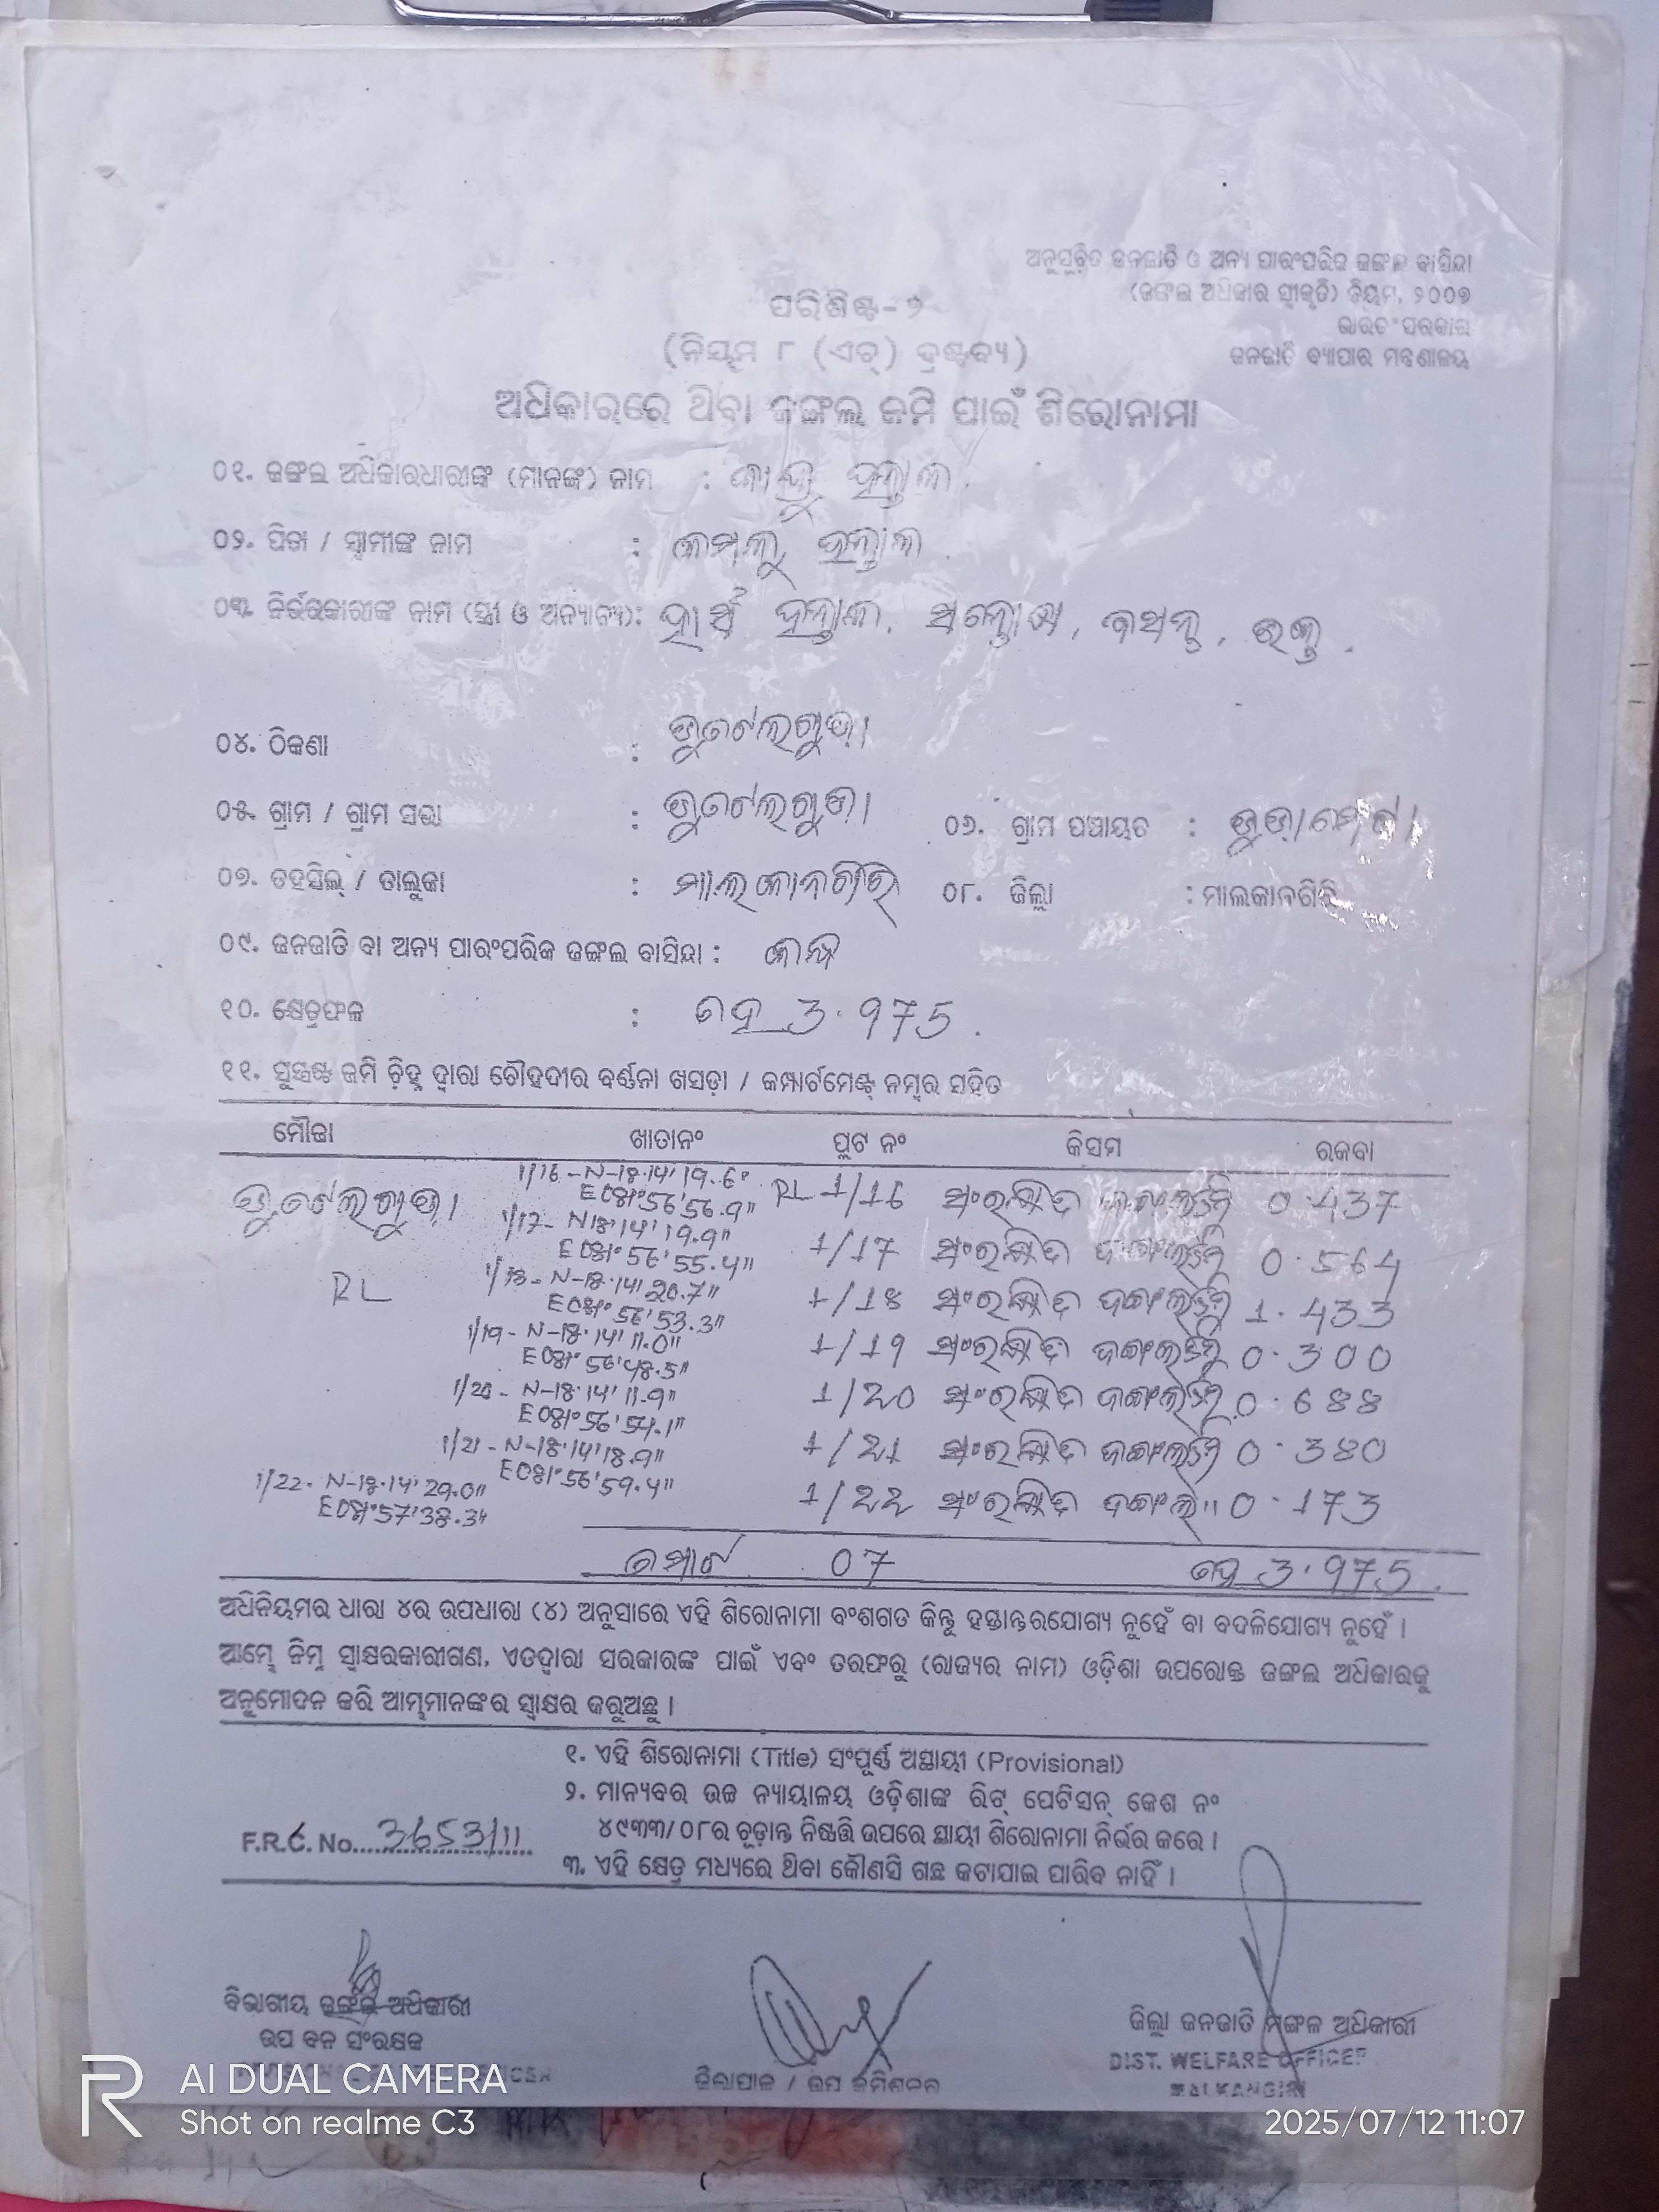 ଅନୁସୂଚିତ ଜନଜାତି ଓ ଅନ୍ୟ ପାରଂପରିକ ଜଙ୍ଗଲ ବାସିନ୍ଦା
(ଜଙ୍ଗଲ ଅଧିକାର ସ୍ୱୀକୃତି) ନିୟମ, ୨୦୦୭
ଭାରତ ସରକାର
ଜନଜାତି ବ୍ୟାପାର ମନ୍ତ୍ରଣାଳୟ
ପରିଶିଷ୍ଟ-୨
(ନିୟମ ୮ (ଏଚ୍) ଦ୍ରଷ୍ଟବ୍ୟ)
ଅଧିକାରରେ ଥିବା ଜଙ୍ଗଲ ଜମି ପାଇଁ ଶିରୋନାମା
୦୧. ଜଙ୍ଗଲ ଅଧିକାରଧାରୀଙ୍କ (ମାନଙ୍କ) ନାମ :
୦୨. ପିତା / ସ୍ୱାମୀଙ୍କ ନାମ :
୦୩. ନିର୍ଭରକାରୀଙ୍କ ନାମ (ସ୍ତ୍ରୀ ଓ ଅନ୍ୟାନ୍ୟ):
୦୪. ଠିକଣା :
୦୫. ଗ୍ରାମ / ଗ୍ରାମ ସଭା : ୦୬. ଗ୍ରାମ ପଞ୍ଚାୟତ :
୦୭. ତହସିଲ୍ / ତାଲୁକା : ମାଲକାନଗିରି ୦୮. ଜିଲ୍ଲା : ମାଲକାନଗିରି
୦୯. ଜନଜାତି ବା ଅନ୍ୟ ପାରଂପରିକ ଜଙ୍ଗଲ ବାସିନ୍ଦା :
୧୦. କ୍ଷେତ୍ରଫଳ : ହେ 3.975.
୧୧. ସୁସ୍ପଷ୍ଟ ଜମି ଚିହ୍ନ ଦ୍ୱାରା ଚୌହଦୀର ବର୍ଣ୍ଣନା ଖସଡ଼ା / କମ୍ପାର୍ଟମେଣ୍ଟ୍ ନମ୍ବର ସହିତ
ମୌଜା ଖାତାନଂ ପ୍ଲଟ ନଂ କିସମ ରକବା
1/16 - N-18°14'19.6" RL 1/16 ସଂରକ୍ଷିତ 0.437
E 081°56'56.9"
1/17- N18°14'19.9" 1/17 ସଂରକ୍ଷିତ 0.564
E 081°56'55.4"
RL 1/18- N-18°14'20.7" 1/18 ସଂରକ୍ଷିତ 1.433
E 081°56'53.3"
1/19- N-18°14'11.0" 1/19 ସଂରକ୍ଷିତ 0.300
E 081°56'48.5"
1/20- N-18°14'11.9" 1/20 ସଂରକ୍ଷିତ 0.688
E 081°56'54.1"
1/21- N-18°14'18.9" 1/21 ସଂରକ୍ଷିତ 0.380
E 081°56'59.4"
1/22- N-18°14'29.0" 1/22 ସଂରକ୍ଷିତ 0.173
E 081°57'38.3"
ମୋଟ 07 ହେ 3.975.
ଅଧିନିୟମର ଧାରା ୪ର ଉପଧାରା (୪) ଅନୁସାରେ ଏହି ଶିରୋନାମା ବଂଶଗତ କିନ୍ତୁ ହସ୍ତାନ୍ତରଯୋଗ୍ୟ ନୁହେଁ ବା ବଦଳିଯୋଗ୍ୟ ନୁହେଁ ।
ଆମ୍ଭେ ନିମ୍ନ ସ୍ୱାକ୍ଷରକାରୀଗଣ, ଏତଦ୍ୱାରା ସରକାରଙ୍କ ପାଇଁ ଏବଂ ତରଫରୁ (ରାଜ୍ୟର ନାମ) ଓଡ଼ିଶା ଉପରୋକ୍ତ ଜଙ୍ଗଲ ଅଧିକାରକୁ
ଅନୁମୋଦନ କରି ଆମ୍ଭମାନଙ୍କର ସ୍ୱାକ୍ଷର କରୁଅଛୁ ।
୧. ଏହି ଶିରୋନାମା (Title) ସଂପୂର୍ଣ୍ଣ ଅସ୍ଥାୟୀ (Provisional)
୨. ମାନ୍ୟବର ଉଚ୍ଚ ନ୍ୟାୟାଳୟ ଓଡ଼ିଶାଙ୍କ ରିଟ୍ ପେଟିସନ୍ କେଶ ନଂ
୪୯୩୩/୦୮ର ଚୂଡ଼ାନ୍ତ ନିଷ୍ପତ୍ତି ଉପରେ ସ୍ଥାୟୀ ଶିରୋନାମା ନିର୍ଭର କରେ ।
F.R.C. No....3653/11
୩. ଏହି କ୍ଷେତ୍ର ମଧ୍ୟରେ ଥିବା କୌଣସି ଗଛ କଟାଯାଇ ପାରିବ ନାହିଁ ।
ବିଭାଗୀୟ ଜଙ୍ଗଲ ଅଧିକାରୀ
ଉପ ବନ ସଂରକ୍ଷକ
ଜିଲ୍ଲାପାଳ / ଉପ କମିଶନର
ଜିଲ୍ଲା ଜନଜାତି ମଙ୍ଗଳ ଅଧିକାରୀ
DIST. WELFARE OFFICER
MALKANGIRI
AI DUAL CAMERA
Shot on realme C3
2025/07/12 11:07